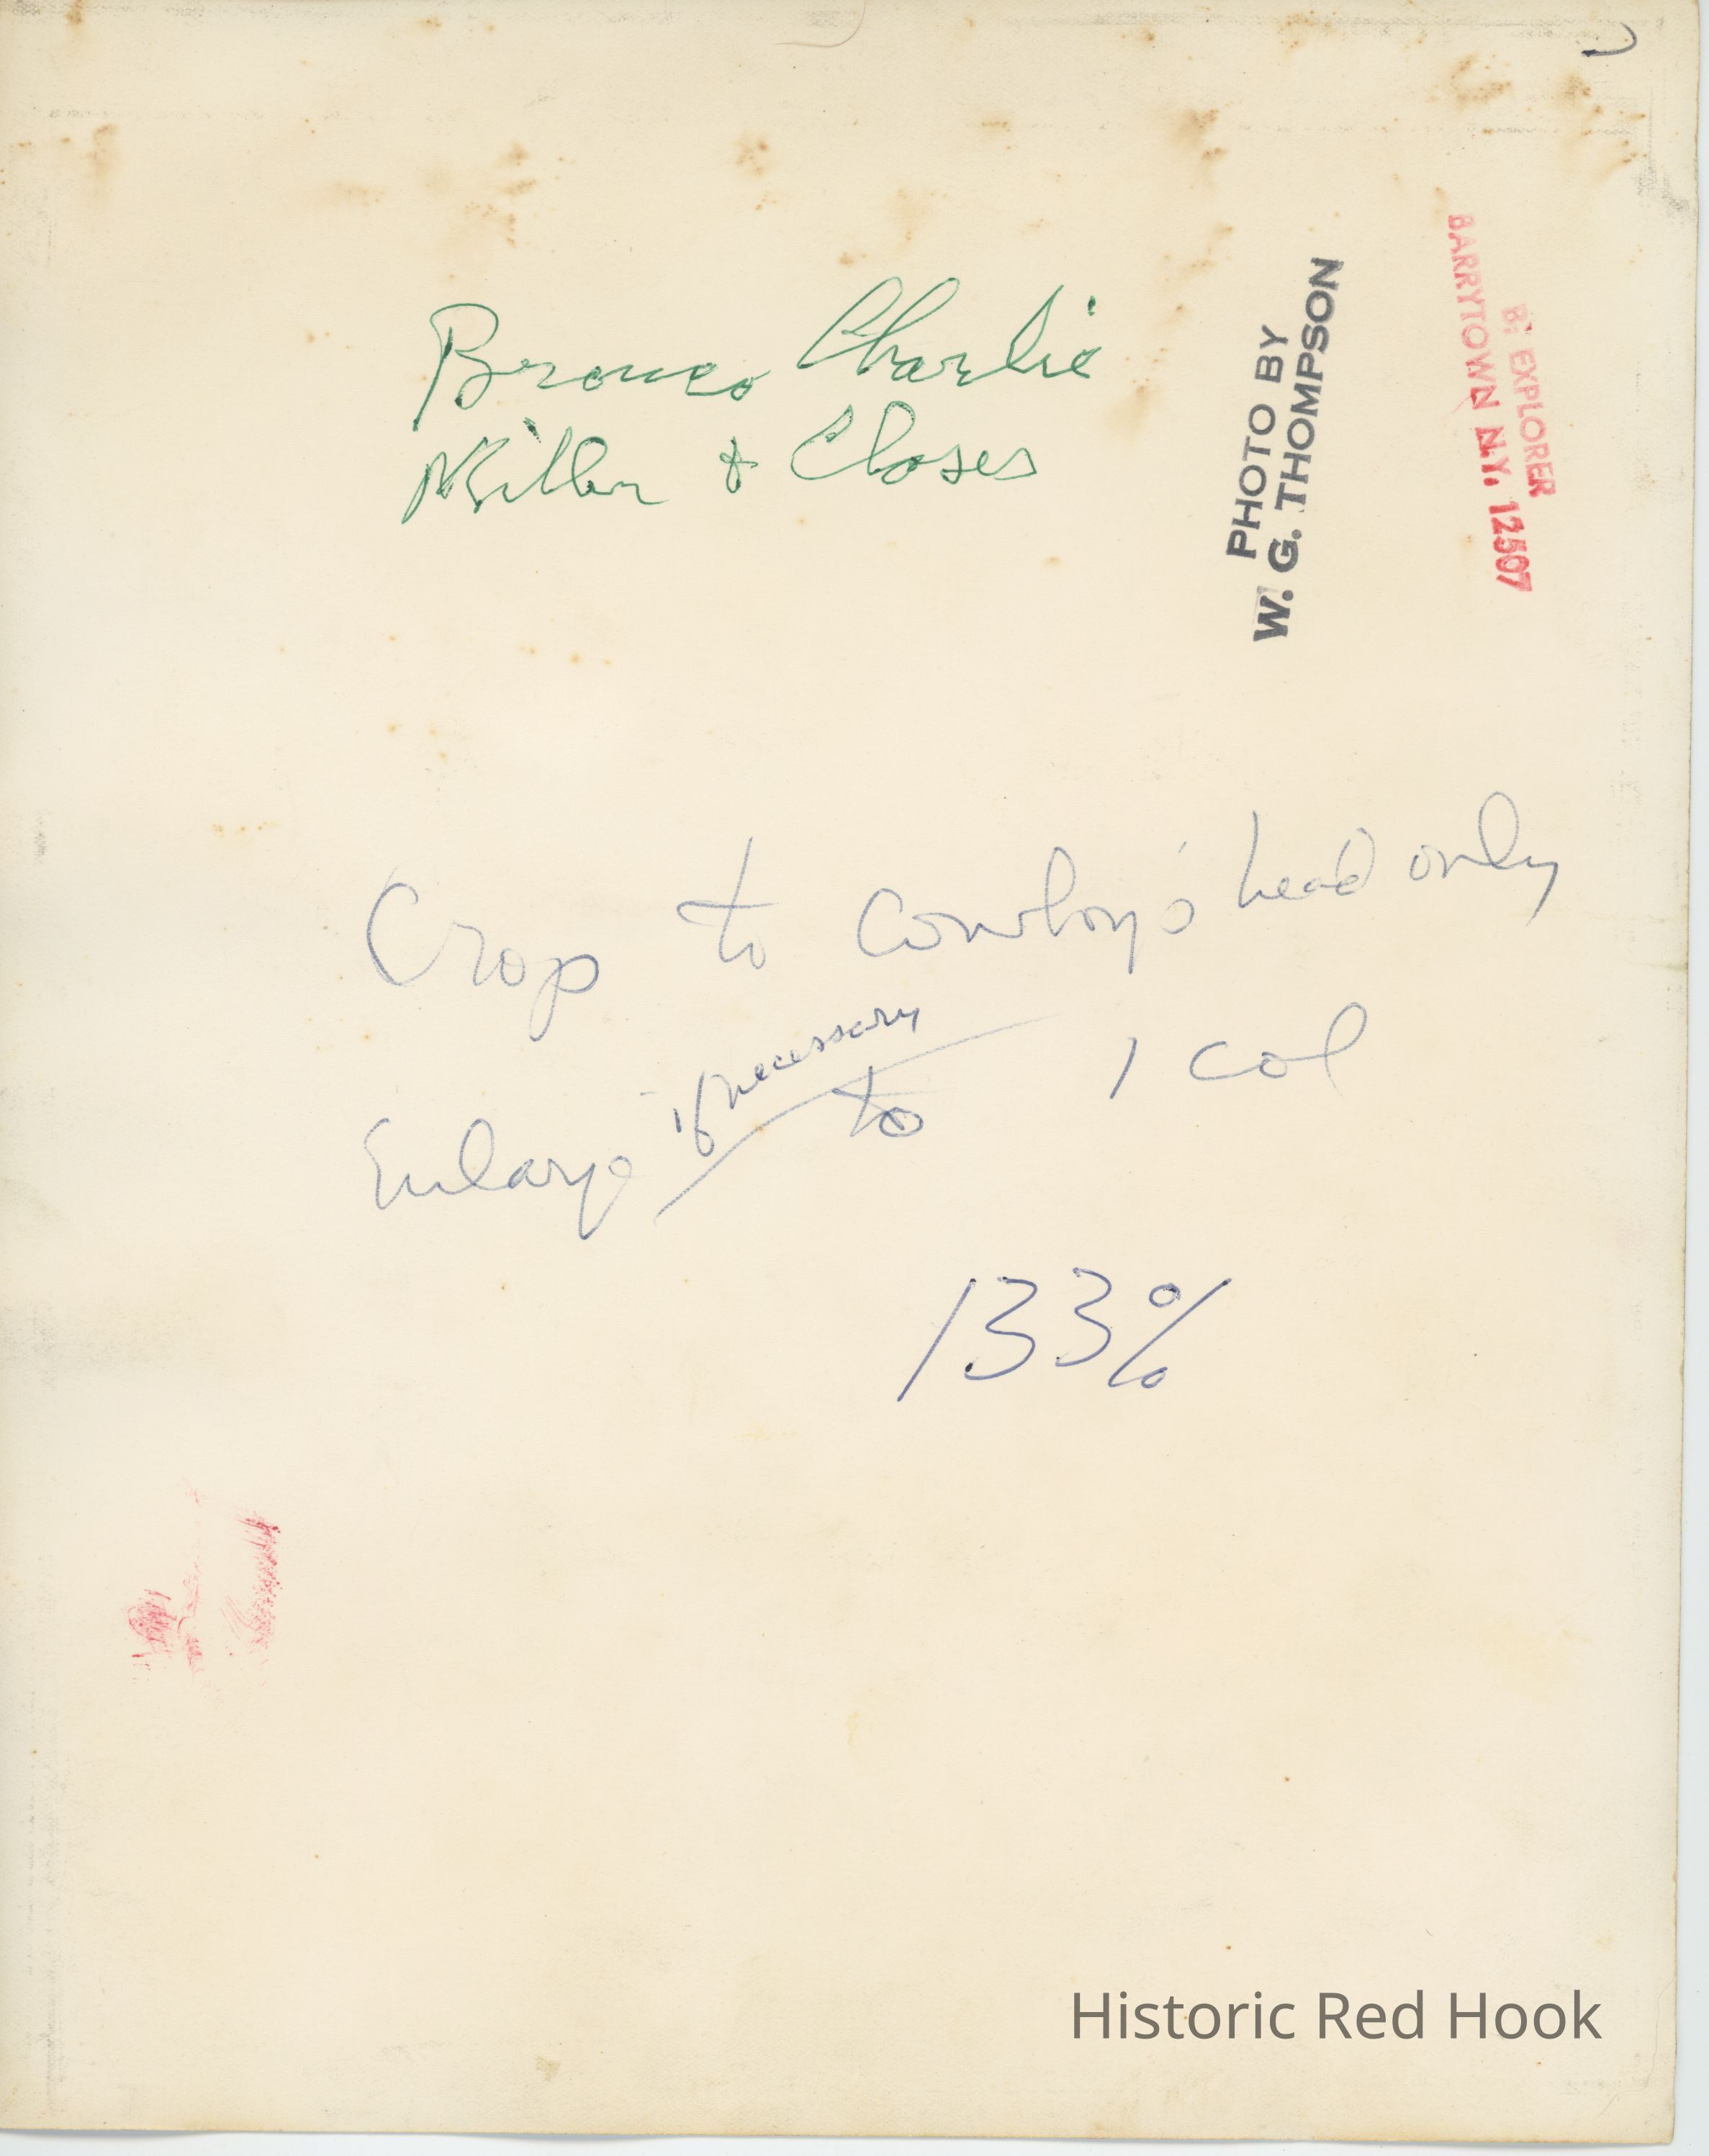 Bronco Charlie
Miller + Closes
PHOTO BY
W. G. THOMPSON
B: EXPLORER
BARRYTOWN N.Y. 12507
Crop to Cowboy's head only
Enlarge if necessary to 1 col
133%
Historic Red Hook